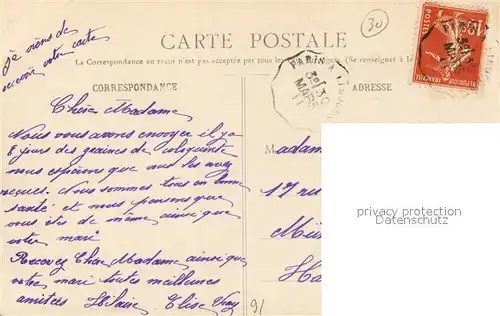 Je viens de
recevoir votre carte
30
CARTE POSTALE
La Correspondance au recto n'est pas acceptée par tous les pays étrangers. (Se renseigner à la
CORRESPONDANCE
ADRESSE
POSTES
FRANÇAISE
PARIS
MARS
11
Chère Madame
Nous vous avons envoyer il y a
8 jours des graines de coloquinte
nous espérons que vous les avez
reçues. Nous sommes tous en bonne
santé et nous pensons que
vous êtes de même ainsi que
votre mari
Recevez Chère Madame ainsi que
votre mari toutes meilleures
amitiés Hilaire Elise
Madam
17 rue
91
privacy protection
Datenschutz